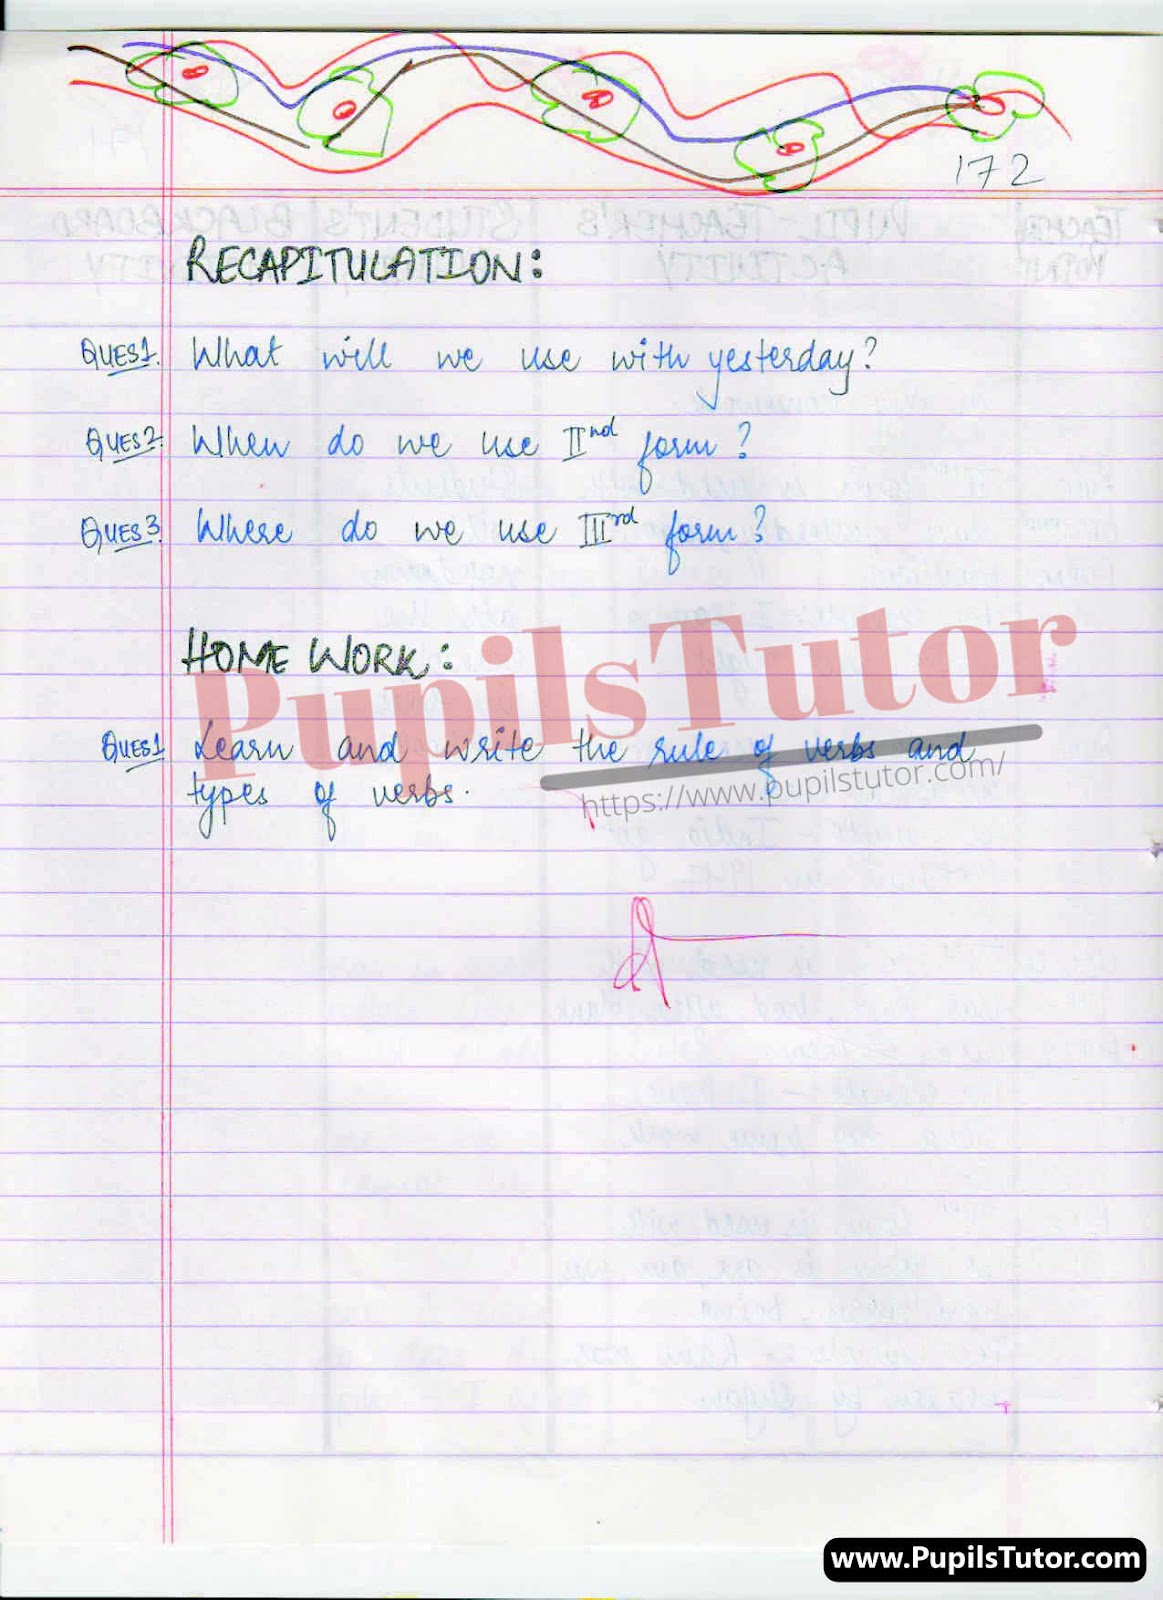 172
RECAPITULATION:
QUES1. What will we use with yesterday?
QUES2. When do we use IInd form?
QUES3. Where do we use IIIrd form?
HOME WORK:
QUES1 Learn and write the rule of verbs and
types of verbs.
PupilsTutor
https://www.pupilstutor.com/
www.PupilsTutor.com